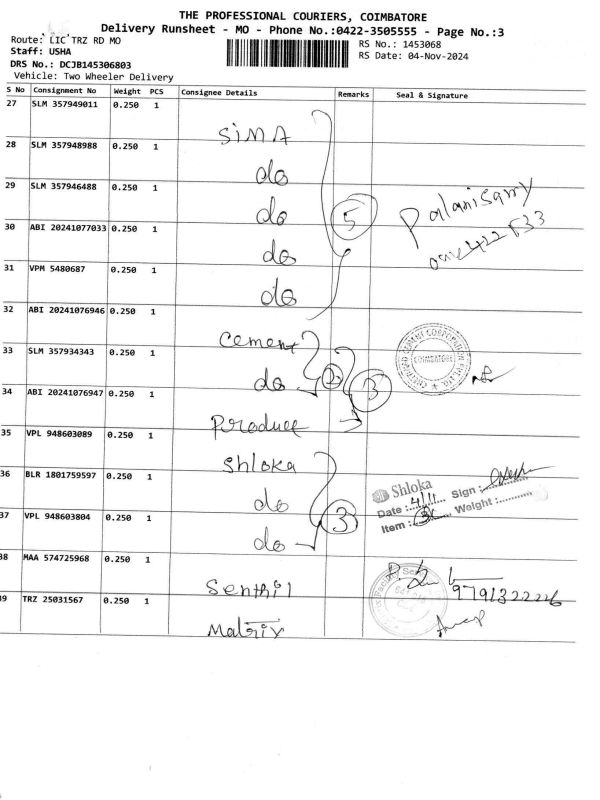 THE PROFESSIONAL COURIERS, COIMBATORE
Delivery Runsheet - MO - Phone No.:0422-3505555 - Page No.:3
Route: LIC TRZ RD MO
Staff: USHA
DRS No.: DCJB145306803
Vehicle: Two Wheeler Delivery
RS No.: 1453068
RS Date: 04-Nov-2024
S No Consignment No Weight PCS Consignee Details Remarks Seal & Signature
27 SLM 357949011 0.250 1 SiMA
28 SLM 357948988 0.250 1 do
29 SLM 357946488 0.250 1 do 5 Palanisamy
30 ABI 20241077033 0.250 1 do
31 VPM 5480687 0.250 1 do
32 ABI 20241076946 0.250 1 cement
33 SLM 357934343 0.250 1 do 2 3 COIMBATORE
34 ABI 20241076947 0.250 1 produce
35 VPL 948603089 0.250 1 Shloka
36 BLR 1801759597 0.250 1 do
Shloka
Date : 4/11 Sign :
Item : 3 Weight :
37 VPL 948603804 0.250 1 do 3
38 MAA 574725968 0.250 1 Senthil
9791322226
39 TRZ 25031567 0.250 1 Matrix